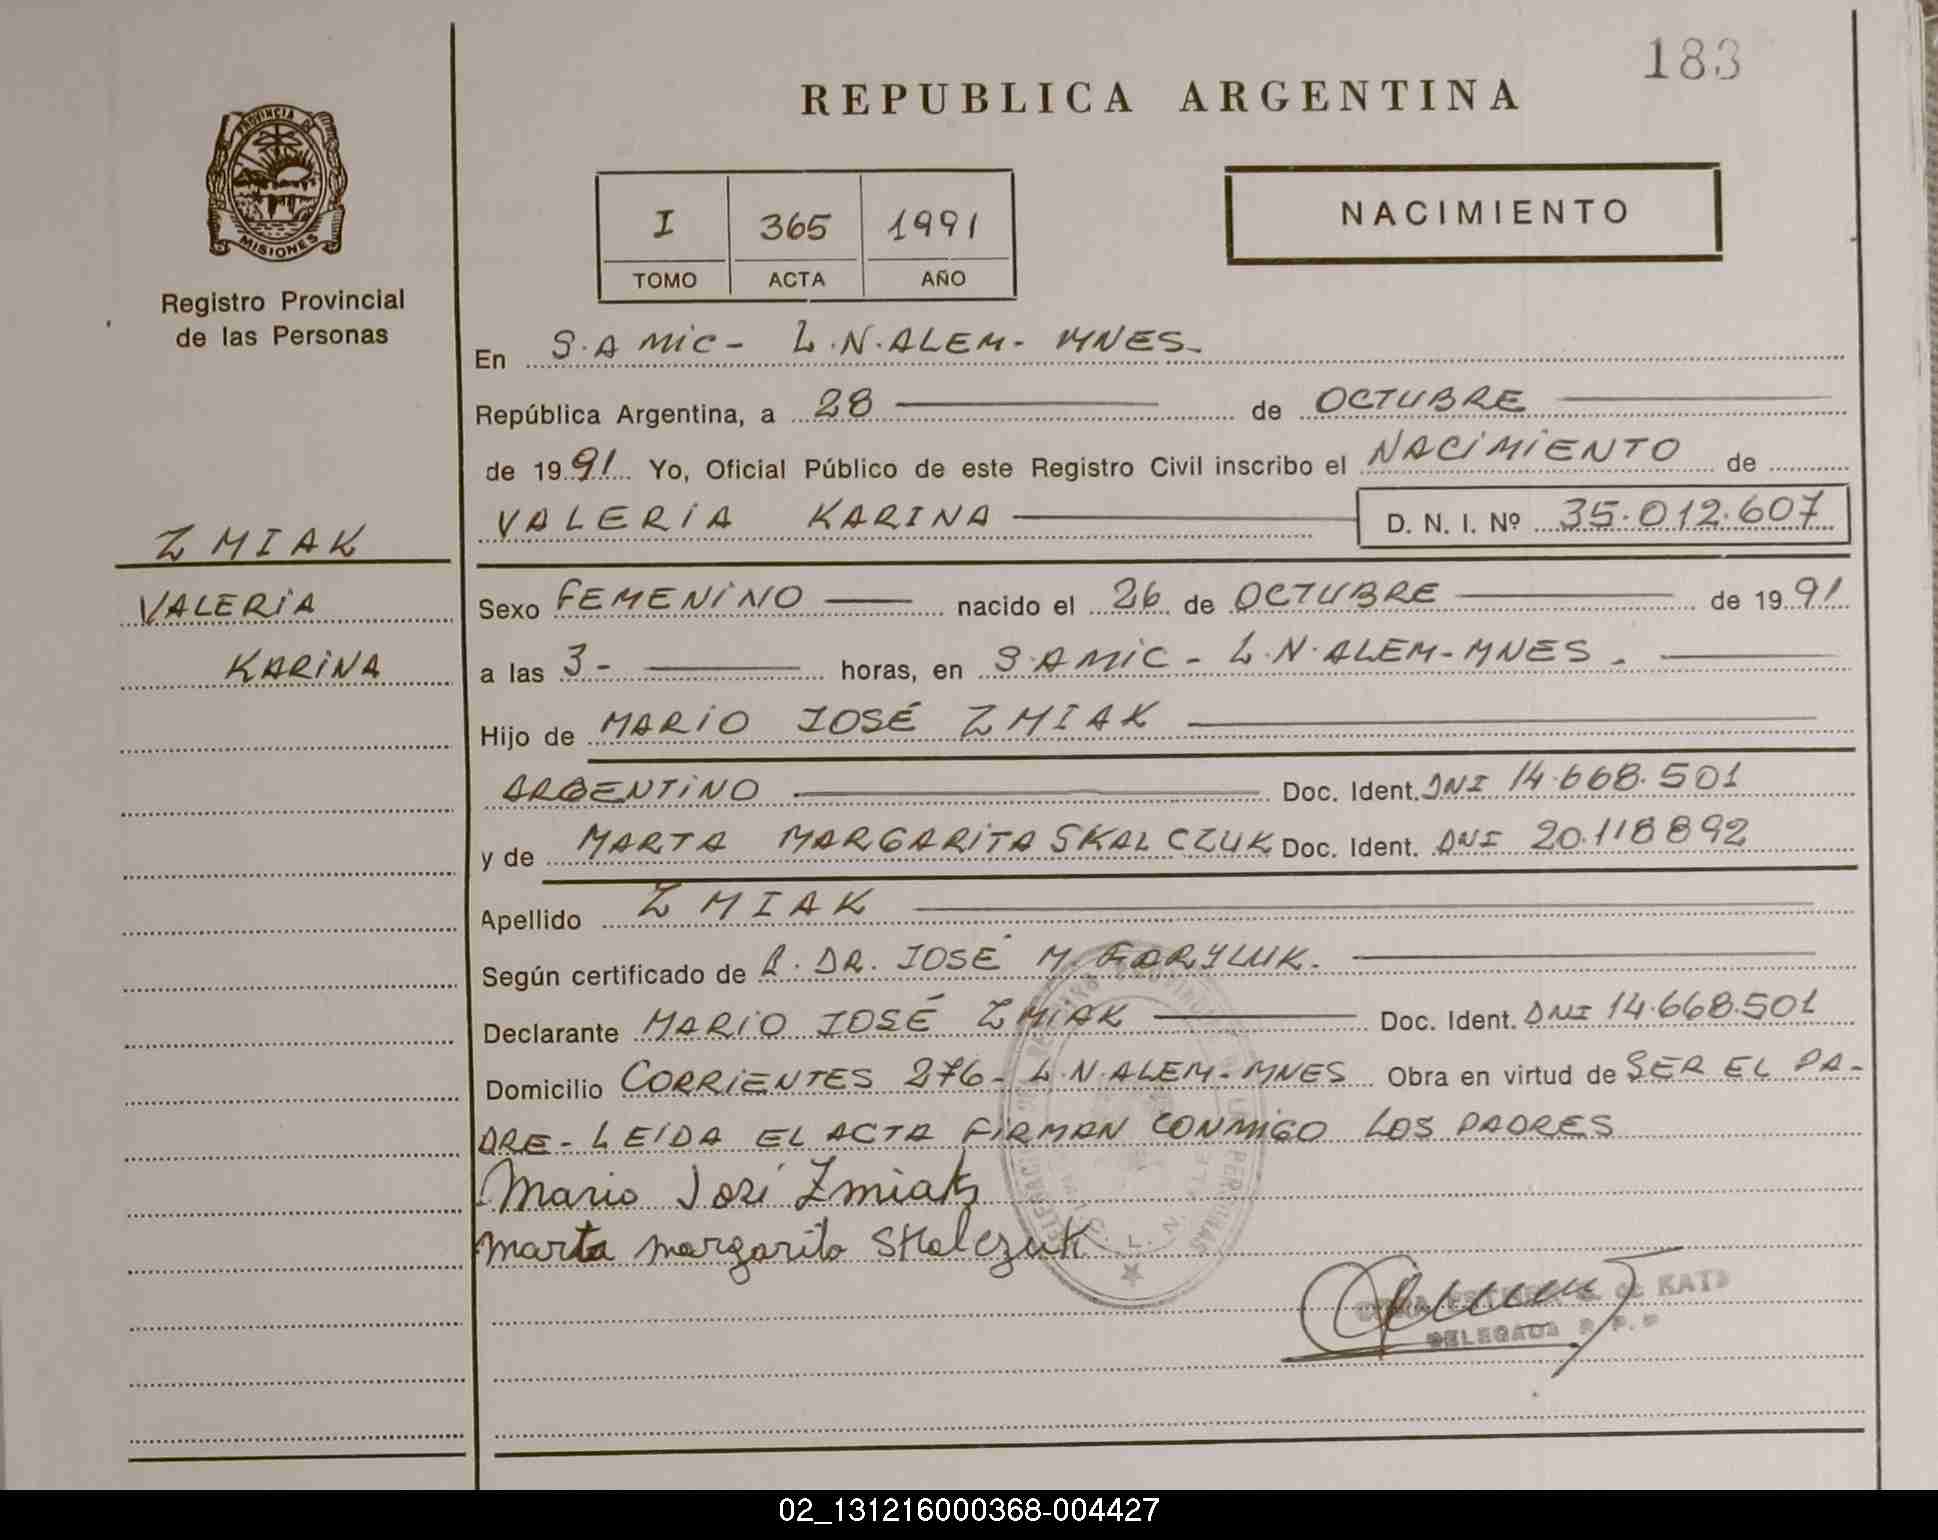 183
REPUBLICA ARGENTINA
PROVINCIA DE
MISIONES
Registro Provincial
de las Personas
I 365 1991
TOMO ACTA AÑO
NACIMIENTO
En S.A MIC- L.N.ALEM- MNES-
República Argentina, a 28 de OCTUBRE
de 1991 Yo, Oficial Público de este Registro Civil inscribo el NACIMIENTO de
VALERIA KARINA D. N. I. Nº 35.012.607
ZMIAK
VALERIA
KARINA
Sexo FEMENINO nacido el 26 de OCTUBRE de 1991
a las 3- horas, en S.A MIC - L.N.ALEM-MNES.
Hijo de MARIO JOSÉ ZMIAK
ARGENTINO Doc. Ident. DNI 14.668.501
y de MARTA MARGARITA SKALCZUK Doc. Ident. DNI 20.118892
Apellido ZMIAK
Según certificado de DR. JOSÉ M.
Declarante MARIO JOSÉ ZMIAK Doc. Ident. DNI 14.668.501
Domicilio CORRIENTES 276- L.N.ALEM-MNES Obra en virtud de SER EL PA-
DRE- LEIDA EL ACTA FIRMAN CONMIGO LOS PADRES
Mario José Zmiak
Marta margarita Skalczuk
de KATZ
DELEGADA R.P.P
02_131216000368-004427